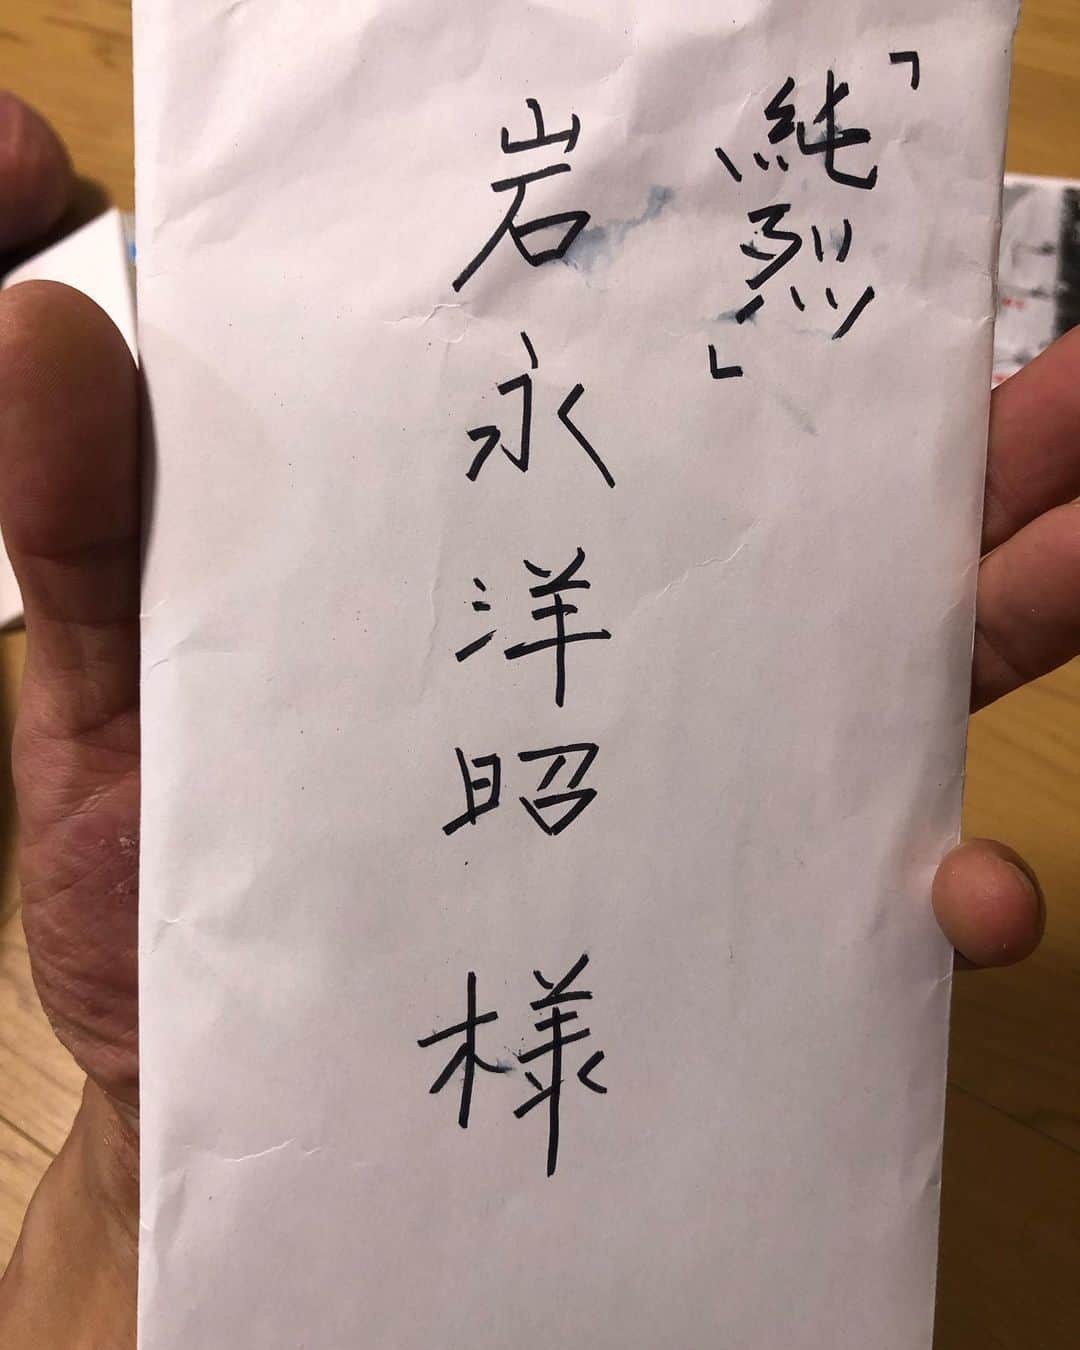 「純烈」
岩永洋昭様